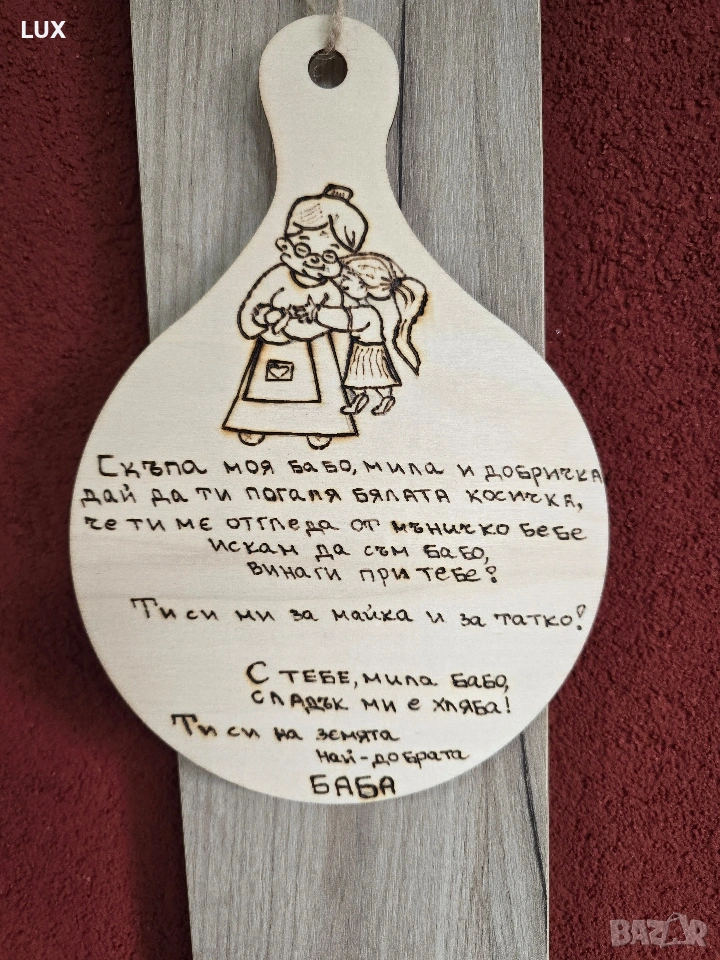 LUX
Скъпа моя бабо, мила и добричка
дай да ти погаля бялата косичка,
че ти ме отгледа от мъничко бебе
искам да съм бабо,
винаги при тебе!
Ти си ми за майка и за татко!
С тебе, мила бабо,
сладък ми е хляба!
Ти си на земята
най-добрата
БАБА
BAZAR